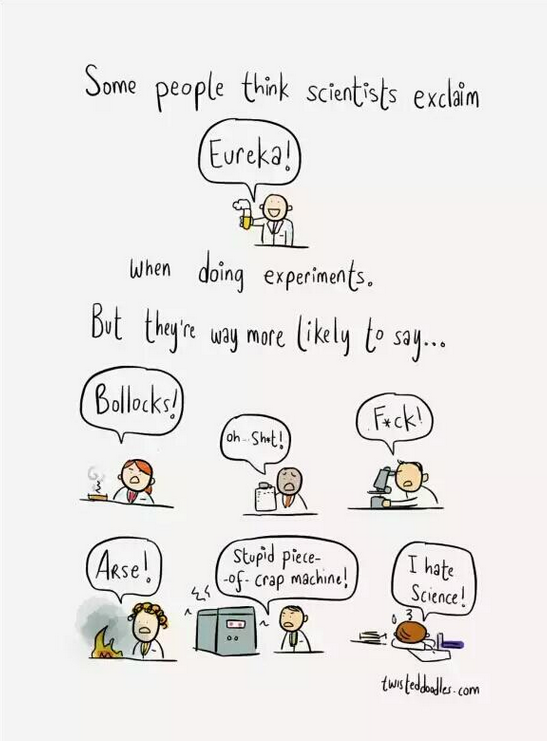 Some people think scientists exclaim
Eureka!
when doing experiments.
But they're way more likely to say...
Bollocks!
oh...Sh*t!
F*ck!
Arse!
Stupid piece-
-of-crap machine!
I hate
Science!
twisteddoodles.com